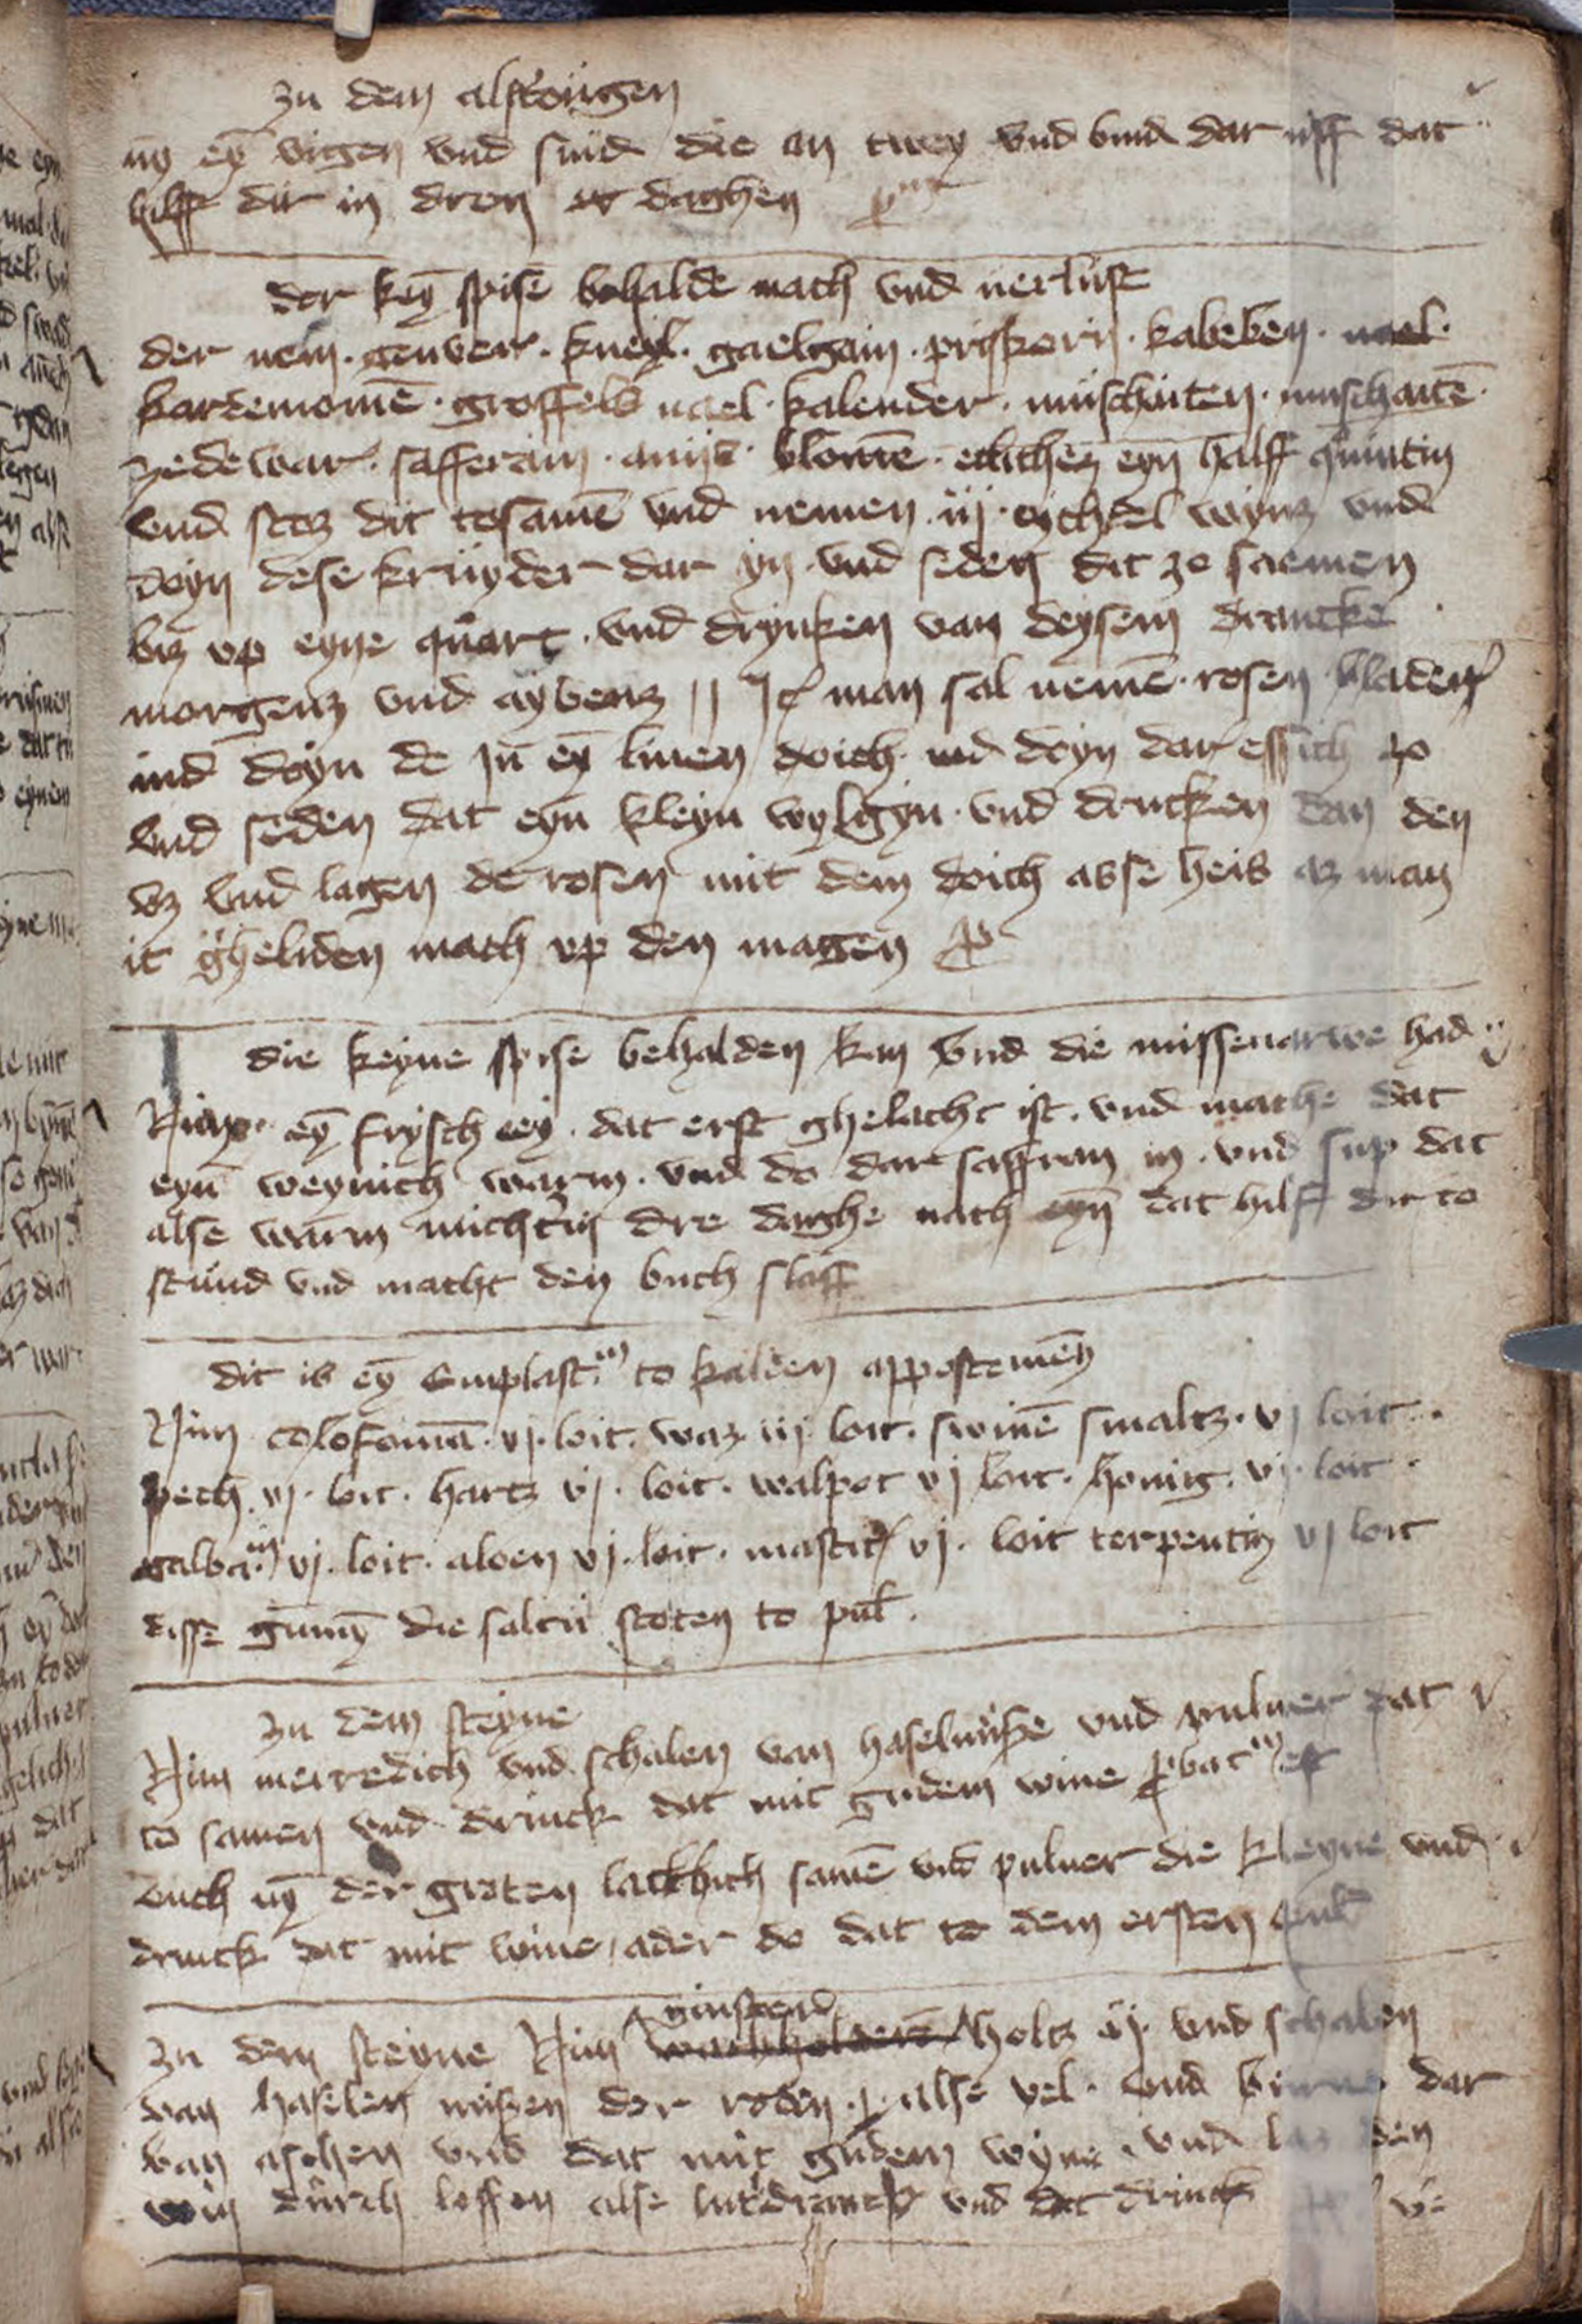 zu dem alsteŕngen
nȳ eȳ vigen vnd snid die an twey vnd bind dar uff dat
hilff dir in dren daghen
der keȳ spise behaldē mach vnd verlust
der nem · genver · kneyl · gaelgain · priskorn · kabeben · nael ·
kardemomē · groffels nael · kalender · muschaten · muschatē ·
zedewar · safferain · aniis · blomē · etlichez eyn halff quintin
vnd stoz dit tosamē vnd nemen iij echtel wynz vnd
doyn dese krüyder dar yn vnd seden dit zo saemen
biz vp eyne quart · vnd drynken van deysem drancke
morgenz vnd aybenz || It man sal nemē rosen bladen
ind doyn de in eȳ linen doich ind doyn dar essich zo
vnd seden dat eyn kleyn wylgyn · vnd drucken dan den
vz vnd lagen de rosen mit dem doich asse heis az man
it gheliden mach vp den magen
die keyne spise behalden kan vnd die missenarwe had
Nim eȳ frysch ey · dat erst ghelacht ist · vnd mache dat
eyn weynich warm · vnd do dar saffran in · vnd sup dat
alse warm nuchtern dre daghe nach eyn dat hilff dir to
stund vnd macht den buch slaff
dit is eȳ emplast.m to kalden appostemen
Nim colofoniā · vj · loit · waz iij loit · swinē smaltz · vj loit ·
pech · vj · loit · hartz vj · loit · walpot vj loit · honig · vj · loit ·
galba.m vj · loit · aloen vj · loit · mastic vj · loit terpentin vj loit
disse gumȳ die saltu stoten to pul .
zu dem steyne
Nim merredich vnd schalen van haselnuße vnd pulver dat
to samen vnd drinck dat mit gudem wine ꝓbatm est
ouch nȳ der groten lackbich samē vnd pulver die kleyne vnd
drinck dat mit wine / ader do dat to dem ersten
zu dem steyne Nim wachholders ginsteren holtz ij · vnd schalen
van haselen nußen der roden · alse vel · vnd dar
van aschen vnd dat mit gudem wyne · vnd den
win durch loffen alse lutdranck vnd dat drinck